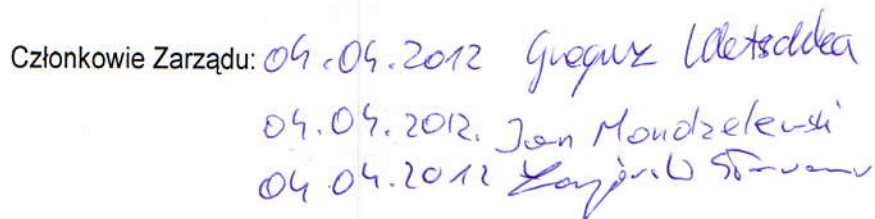 Członkowie Zarządu: 04.04.2012 Grzegorz
04.04.2012. Jan Mondzelewski
04.04.2012